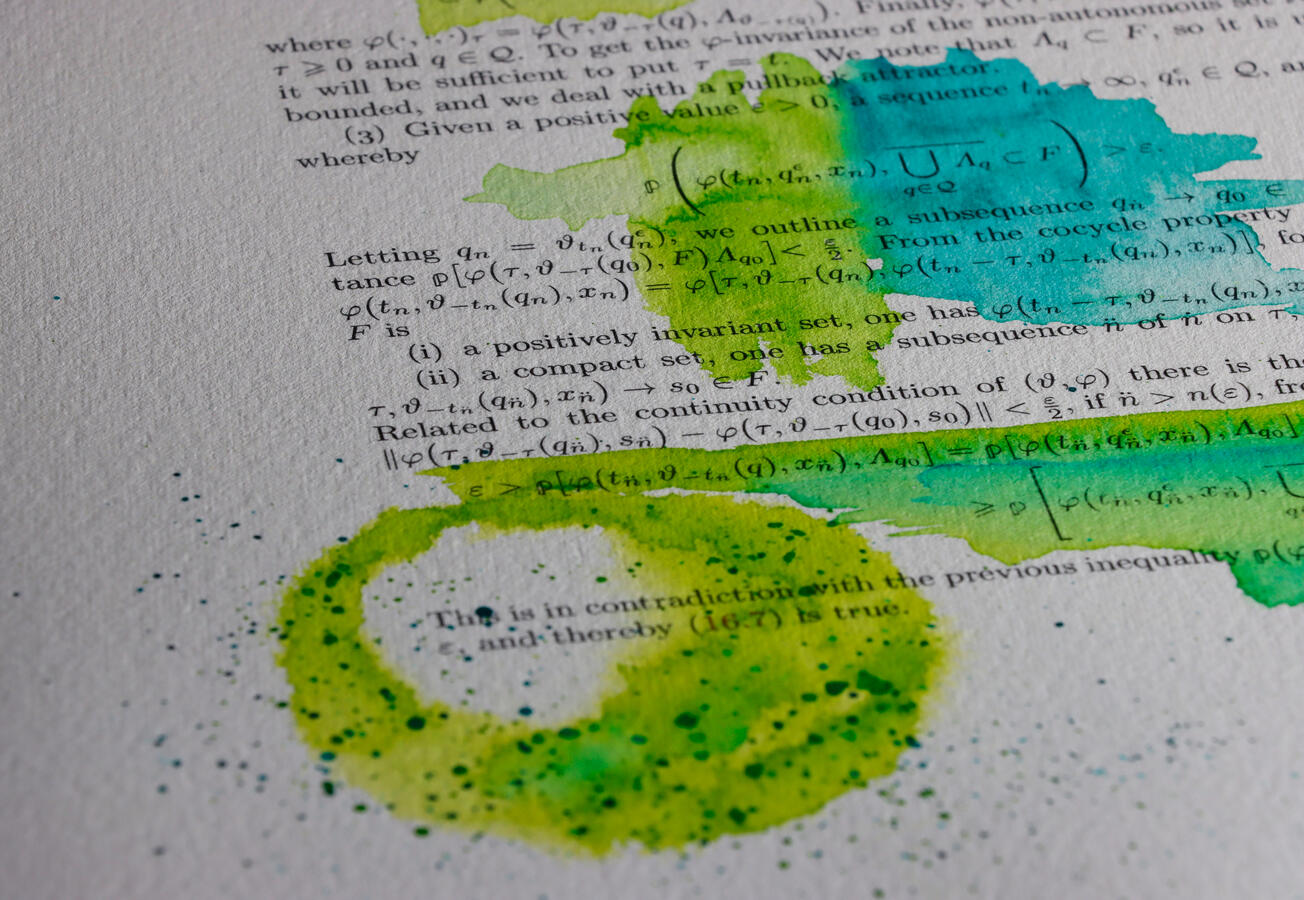 where φ(·, ·, ·)τ = φ(τ, ϑ−τ(q), Λϑ−τ(q)). Finally,
τ ⩾ 0 and q ∈ Q. To get the φ-invariance of the non-autonomous set
it will be sufficient to put τ = t. We note that Λq ⊂ F, so it is
bounded, and we deal with a pullback attractor.
(3) Given a positive value ε > 0, a sequence tn → ∞, qεn ∈ Q,
whereby
ℙ(φ(tn, qεn, xn), ⋃q∈Q Λq ⊂ F) > ε.
Letting qn = ϑtn(qεn), we outline a subsequence qn̈ → q0 ∈
tance ℙ[φ(τ, ϑ−τ(q0), F) Λq0] < ε/2. From the cocycle property
φ(tn, ϑ−tn(qn), xn) = φ[τ, ϑ−τ(qn), φ(tn − τ, ϑ−tn(qn), xn)],
F is
(i) a positively invariant set, one has φ(tn − τ, ϑ−tn(qn),
(ii) a compact set, one has a subsequence n̈ of ṅ on τ,
τ, ϑ−tn̈(qn̈), xn̈) → s0 ∈ F.
Related to the continuity condition of (ϑ, φ) there is
‖φ(τ, ϑ−τ(qn̈), sn̈) − φ(τ, ϑ−τ(q0), s0)‖ < ε/2, if n̈ > n(ε),
ε > ℙ[φ(tn̈, ϑ−tn̈(q), xn̈), Λq0] = ℙ[φ(tn̈, qεn̈, xn̈), Λq0]
⩾ ℙ[φ(tn̈, qεn̈, xn̈), ⋃
This is in contradiction with the previous inequality ℙ(φ
ε, and thereby (16.7) is true.